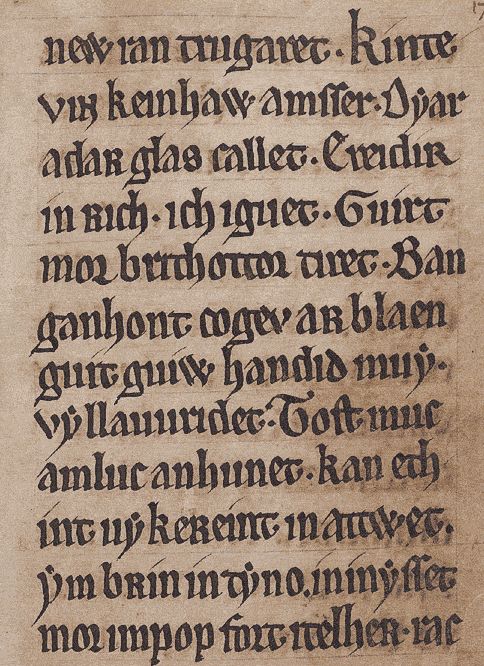 new ran trugaret. kinte
vin keinhaw amsser. Dyar
adar glas callet. Ereidir
in rich. ich iguet. Guirt
mor brithottor tiret. Ban
ganhont cogev ar blaen
guit guiw handid muẏ.
vẏ llauuridet. Tost muc
amluc anhunet. kan eth
int uẏ kereint in attwet.
ẏm brin in tẏno. in inẏsset
mor impop fort itelher. rac